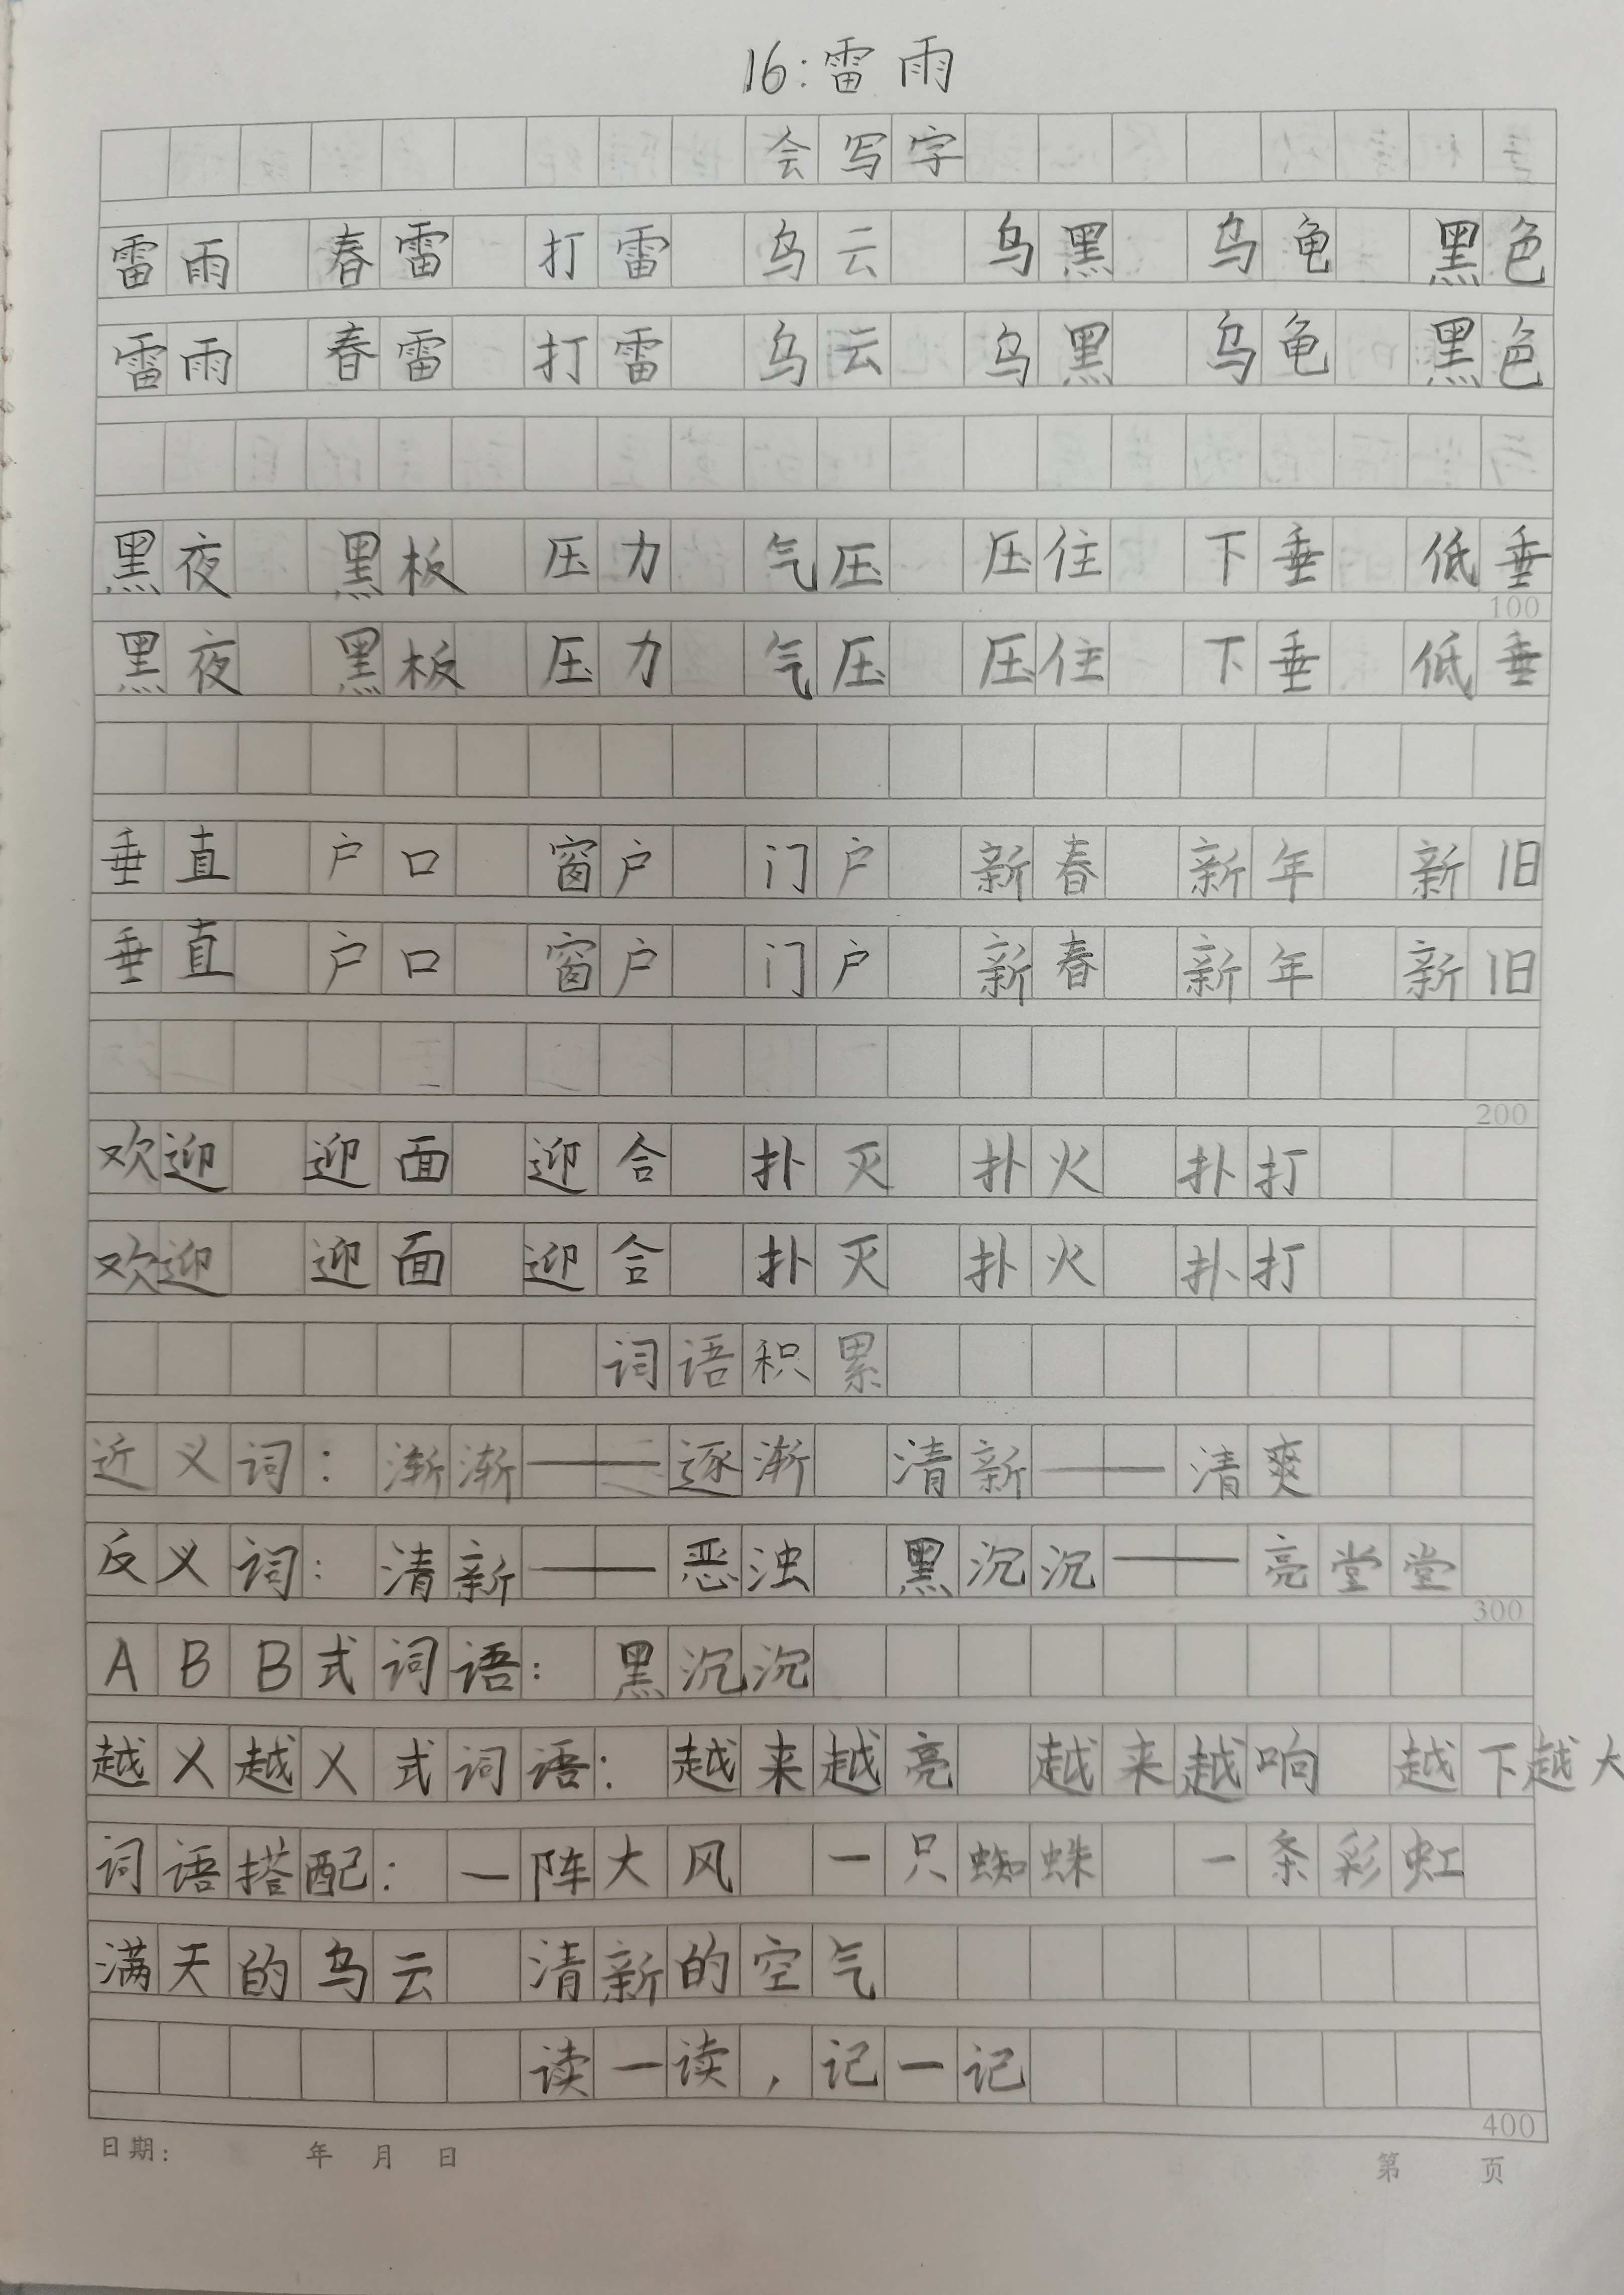 16:雷雨
会写字
雷雨 春雷 打雷 乌云 乌黑 乌龟 黑色
雷雨 春雷 打雷 乌云 乌黑 乌龟 黑色
黑夜 黑板 压力 气压 压住 下垂 低垂
100
黑夜 黑板 压力 气压 压住 下垂 低垂
垂直 户口 窗户 门户 新春 新年 新旧
垂直 户口 窗户 门户 新春 新年 新旧
200
欢迎 迎面 迎合 扑灭 扑火 扑打
欢迎 迎面 迎合 扑灭 扑火 扑打
词语积累
近义词：渐渐——逐渐 清新——清爽
反义词：清新——恶浊 黑沉沉——亮堂堂
300
ABB式词语：黑沉沉
越X越X式词语：越来越亮 越来越响 越下越大
词语搭配：一阵大风 一只蜘蛛 一条彩虹
满天的乌云 清新的空气
读一读，记一记
400
日期： 年 月 日 第 页